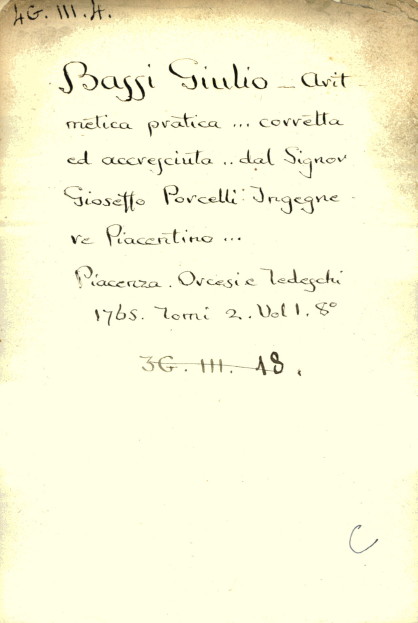 4G. III. 4.
Bassi Giulio _ Arit
metica pratica ... corretta
ed accresciuta .. dal Signor
Gioseffo Porcelli Ingegne
re Piacentino ...
Piacenza. Orcesi e Tedeschi
1765. Tomi 2. Vol 1. 8º
3G. III. 18.
C